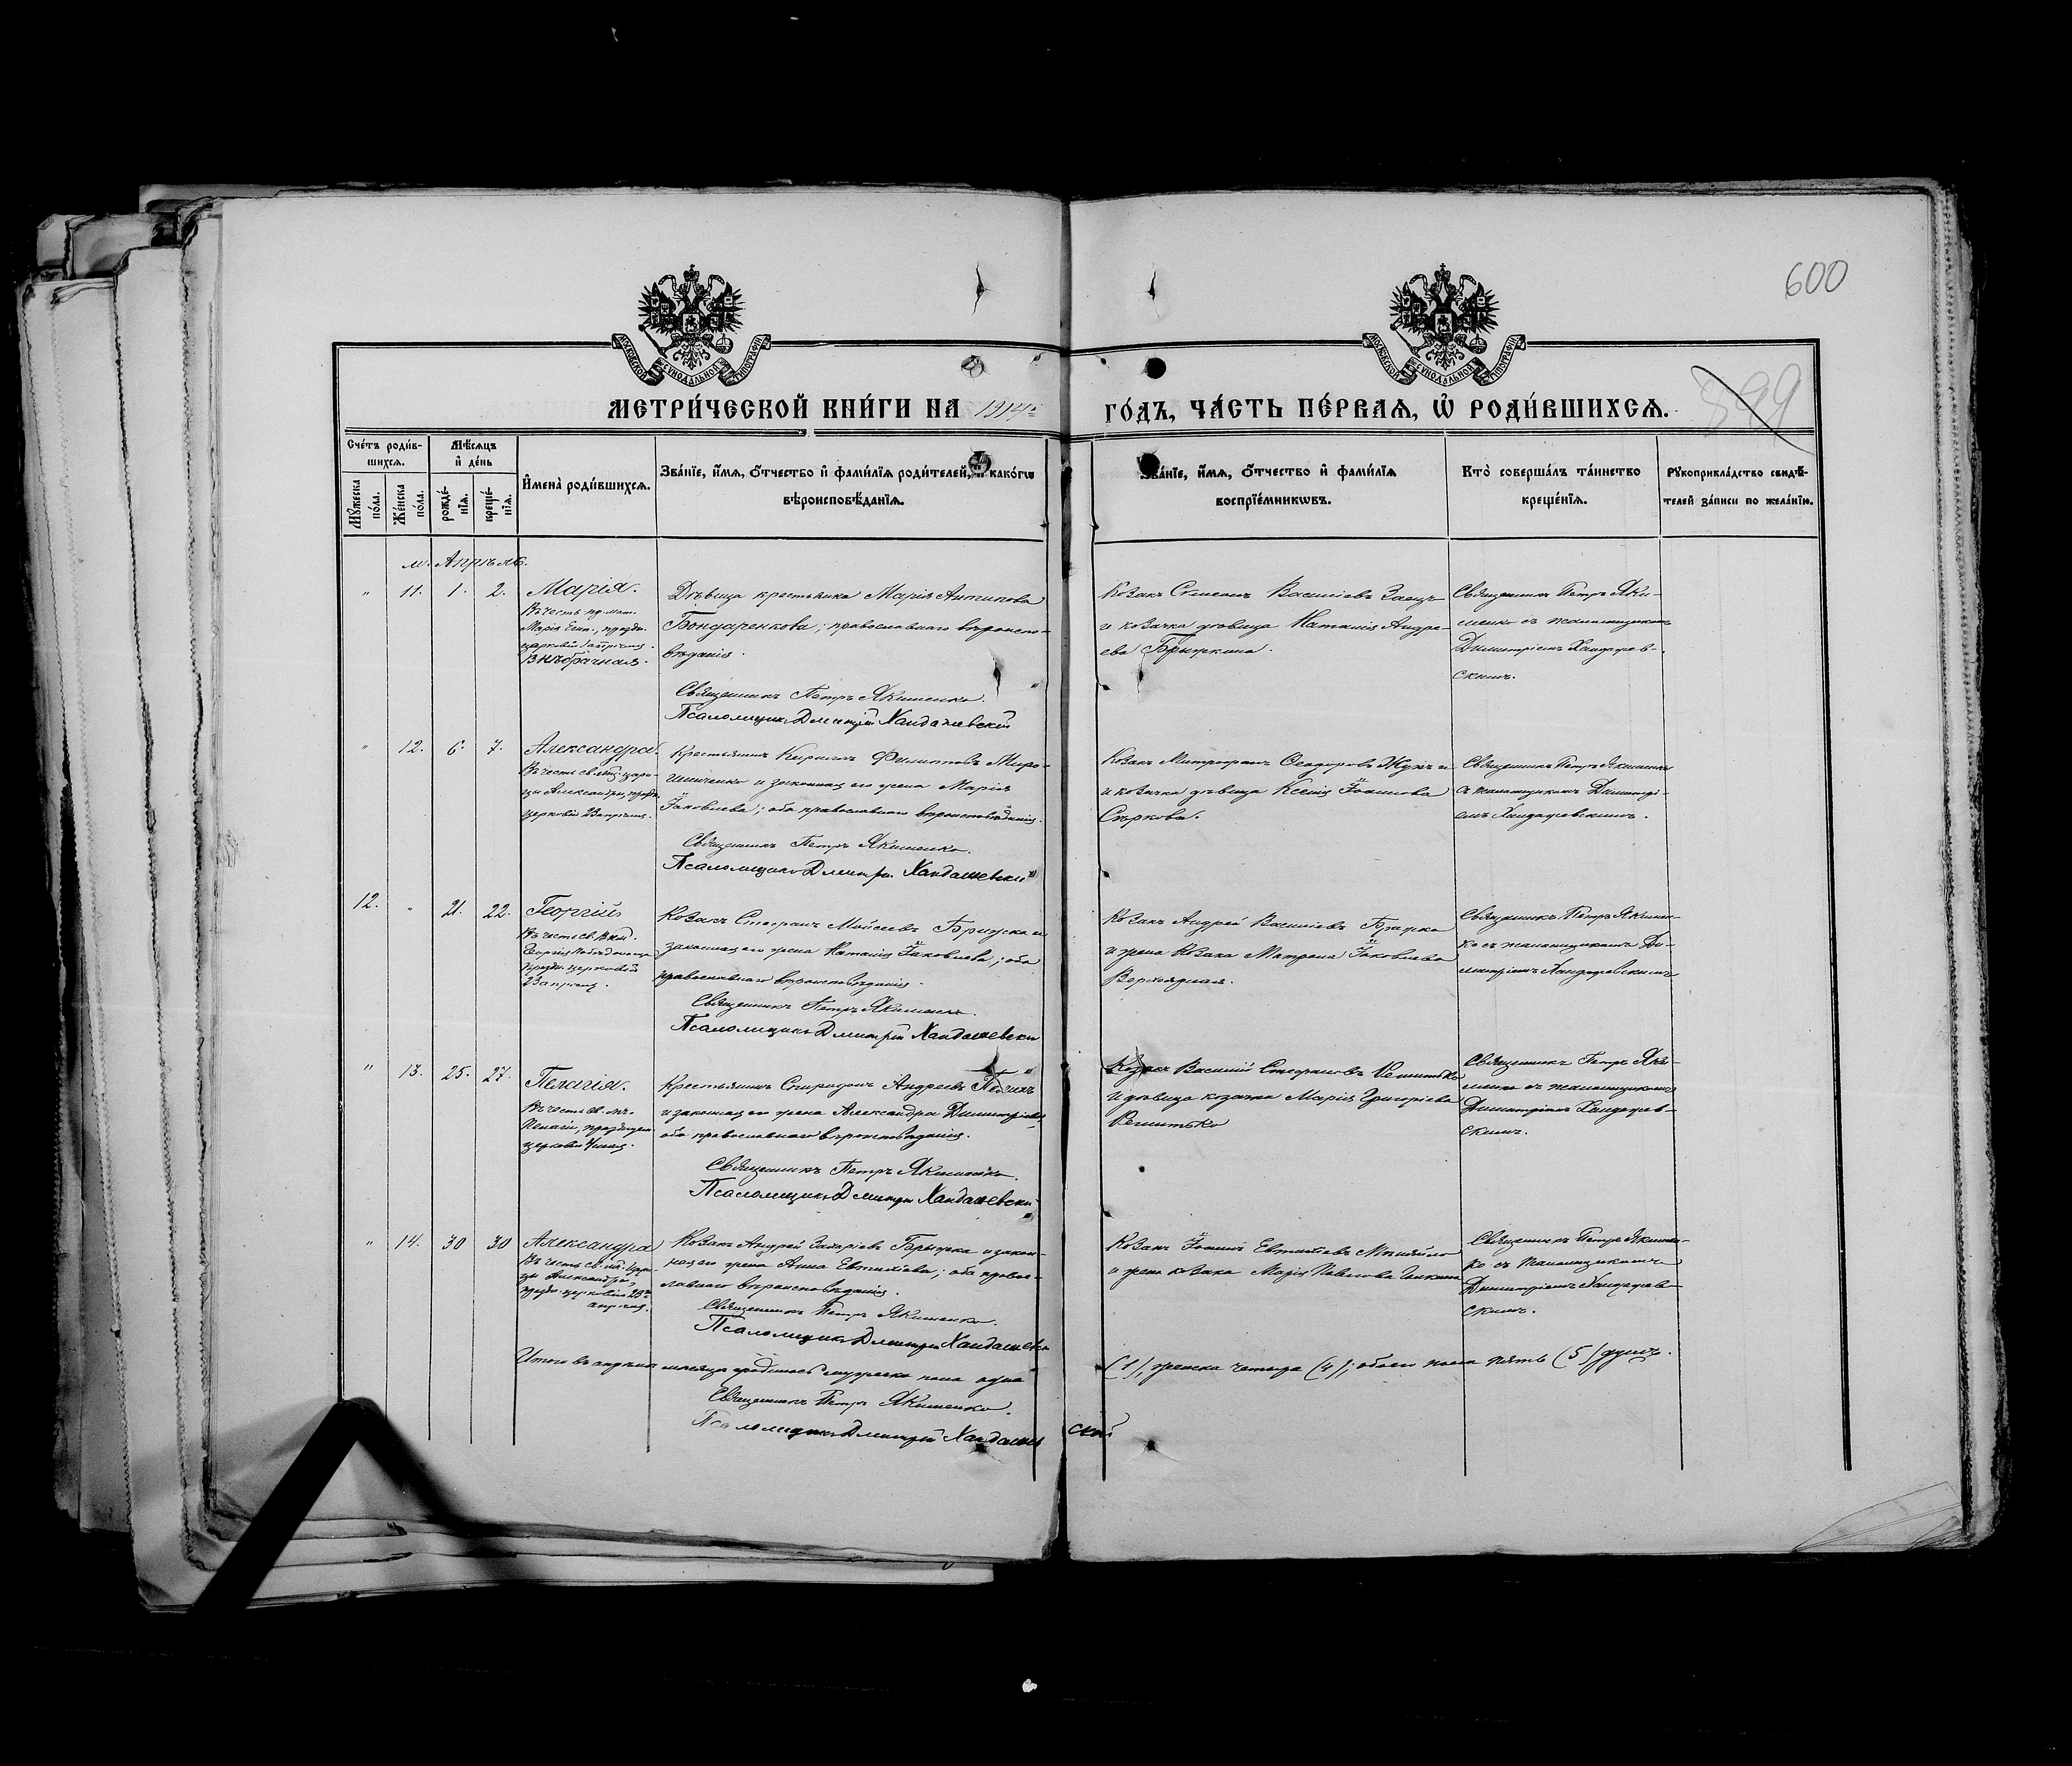 600
599
МОСКОВСКОЙ СѴНОДАЛЬНОЙ ТИПОГРАФІИ
МОСКОВСКОЙ СѴНОДАЛЬНОЙ ТИПОГРАФІИ
МЕТРИ́ЧЕСКОЙ КНИ́ГИ НА 1914й ГО́ДЪ, ЧА́СТЬ ПЕ́РВАѦ, Ѡ҆ РОДИ́ВШИХСѦ.
Сче́тъ роди́в-
шихсѧ.
Мѣ́сѧцъ
и҆ де́нь
Мꙋ́жеска
по́ла.
Же́нска
по́ла.
рожде́-
нїѧ.
креще́-
нїѧ.
И҆мена̀ роди́вшихсѧ.
Зва́нїе, и҆́мѧ, ѻ҆́тчество и҆ фами́лїѧ роди́телей, и҆ како́гѡ
вѣроисповѣ́данїѧ.
Зва́нїе, и҆́мѧ, ѻ҆́тчество и҆ фами́лїѧ
воспрїе́мникѡвъ.
Кто̀ соверша́лъ та́инство
креще́нїѧ.
Рꙋкоприкла́дство свидѣ́-
телей за́писи по жела́нїю.
м. Апрѣль.
" 11. 1. 2. Марія.
Въ честь пр. мат.
Маріи Егип., праздн.
церковію 1 апрѣля.
Внѣбрачная.
Дѣвица крестьянка Марія Антипова
Бондаренкова; православнаго вѣроиспо-
вѣданія.
Священникъ Петръ Якименко.
Псаломщикъ Дмитрій Хандажевскій
Козакъ Симеонъ Василіевъ Заецъ
и козачка дѣвица Наталія Андре-
ева Брыжкина.
Священникъ Петръ Яки-
менко съ псаломщикомъ
Димитріемъ Хандажев-
скимъ.
" 12. 6. 7. Александра.
Въ честь св. мц. цари-
цы Александры, праздн.
церковію 23 апрѣля.
Крестьянинъ Кириллъ Филипповъ Миро-
шниченко и законная его жена Марія
Іаковлева; оба православнаго вѣроисповѣданія.
Священникъ Петръ Якименко.
Псаломщикъ Дмитрій Хандажевскій
Козакъ Митрофанъ Ѳеодоровъ Жукъ и
и козачка дѣвица Ксенія Іоаннова
Сѣркова.
Священникъ Петръ Якименко
съ псаломщикомъ Димитрі-
емъ Хандажевскимъ.
12. " 21. 22. Георгій
Въ честь св. вкмч.
Георгія Побѣдоносца
праздн. церковію
23 апрѣля.
Козакъ Стефанъ Моисеевъ Брижка и
законная его жена Наталія Іаковлева; оба
православнаго вѣроисповѣданія.
Священникъ Петръ Якименко.
Псаломщикъ Дмитрій Хандажевскій
Козакъ Андрей Василіевъ Брижка
и жена козака Матрона Іаковлева
Священникъ Петръ Якимен-
ко съ псаломщикомъ Ди-
митріемъ Хандажевскимъ
" 13. 25. 27. Пелагія.
Въ честь св. мч.
Пелагіи, празднуем.
церковію 4 мая.
Крестьянинъ Спиридонъ Андреевъ
и законная его жена Александра Димитріева;
оба православнаго вѣроисповѣданія.
Священникъ Петръ Якименко.
Псаломщикъ Дмитрій Хандажевскій
Козакъ Василій Стефановъ Решитько
и дѣвица козачка Марія Григоріева
Решитько
Священникъ Петръ Яки-
менко съ псаломщикомъ
Димитріемъ Хандажев-
скимъ.
" 14. 30 30 Александра
Въ честь св. мц. цари-
цы Александры,
праздн. церковію 23го
апрѣля.
Козакъ Андрей Захаріевъ Брыжка и закон-
ная его жена Анна Евтихіева; оба право-
славнаго вѣроисповѣданія.
Священникъ Петръ Якименко.
Псаломщикъ Дмитрій Хандажевскій
Козакъ Іоаннъ Евтихіевъ
и жена козака Марія Павлова
Священникъ Петръ Якимен-
ко съ псаломщикомъ
Димитріемъ Хандажев-
скимъ.
Итого въ апрѣлѣ мѣсяцѣ родилось мужеска пола одна (1), женска четыре (4); обоего пола пять (5) душъ.
Священникъ Петръ Якименко.
Псаломщикъ Дмитрій Хандажевскій